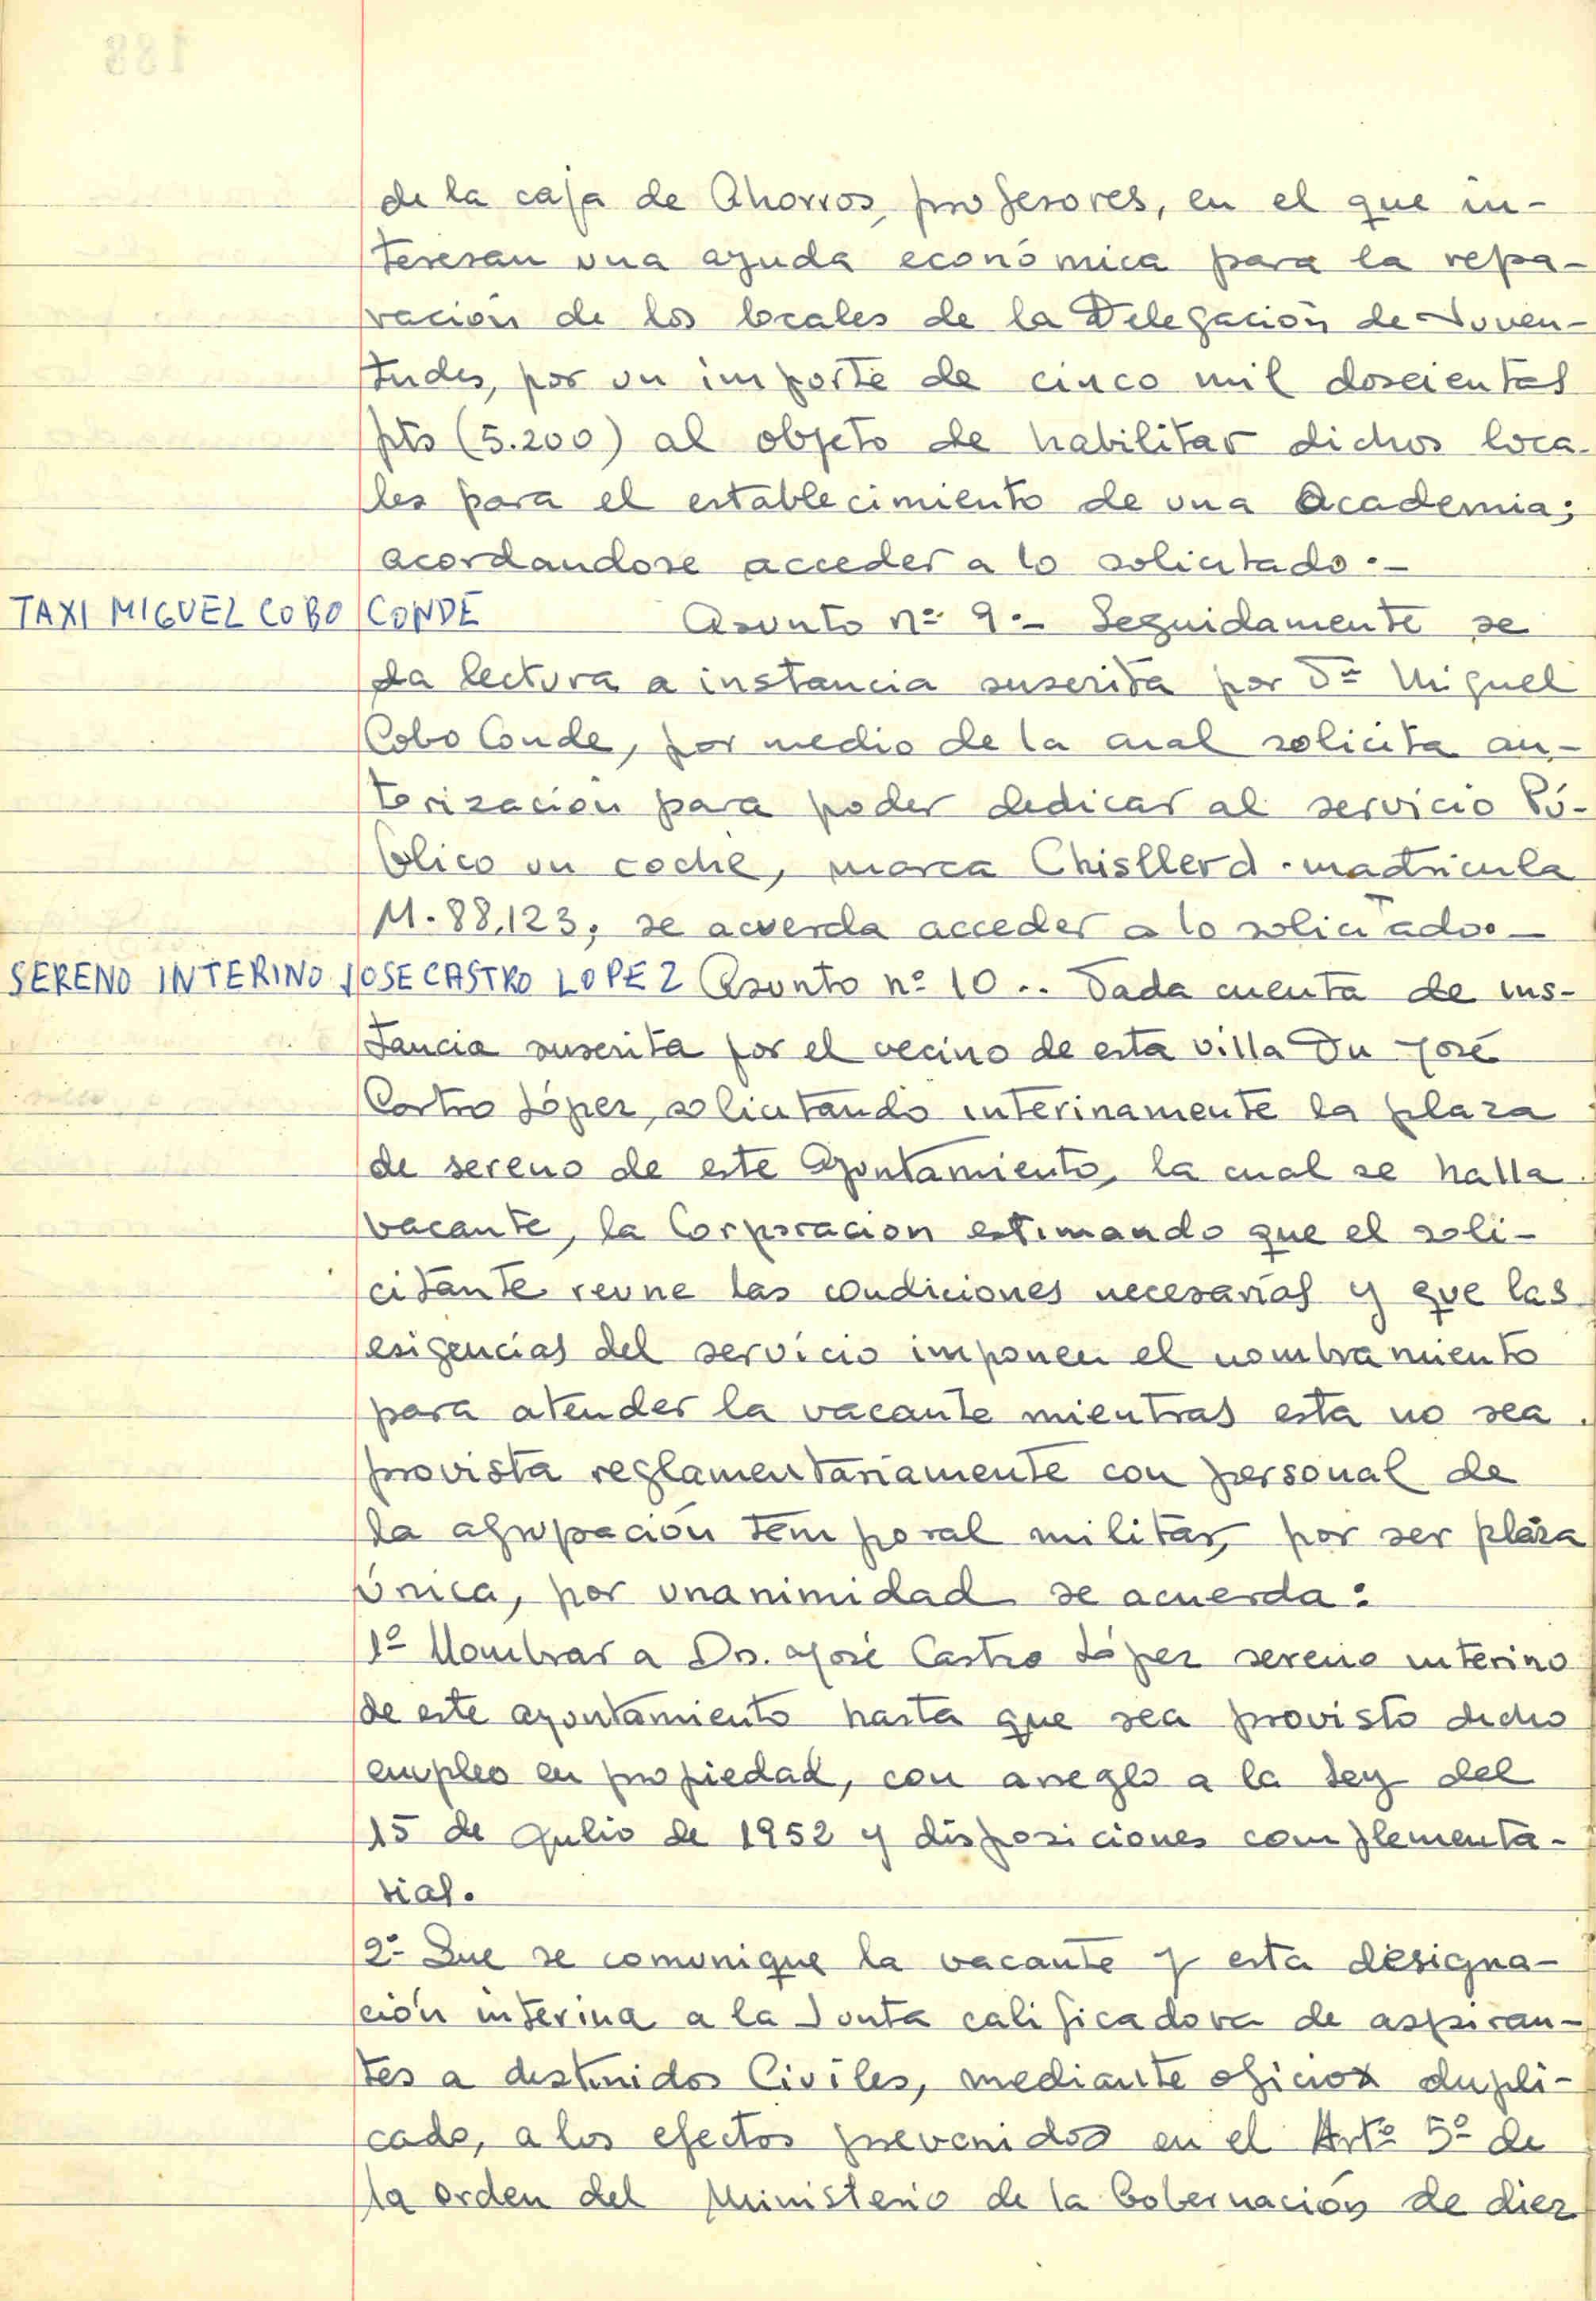 188
de la caja de Ahorros, profesores, en el que in-
teresan una ayuda económica para la repa-
ración de los locales de la Delegación de Juven-
tudes, por un importe de cinco mil doscientas
pts (5.200) al objeto de habilitar dichos loca-
les para el establecimiento de una Academia;
acordandose acceder a lo solicitado.-
TAXI MIGUEL COBO CONDE Asunto nº 9.- Seguidamente se
da lectura a instancia suscrita por Dn Miguel
Cobo Conde, por medio de la cual solicita au-
torización para poder dedicar al servicio Pú-
blico un coche, marca Chisllerd - matricula
M-88.123; se acuerda acceder a lo solicitado.-
SERENO INTERINO JOSE CASTRO LOPEZ Asunto nº 10.- Dada cuenta de ins-
tancia suscrita por el vecino de esta villa Dn José
Castro López, solicitando interinamente la plaza
de sereno de este Ayuntamiento, la cual se halla
vacante, la Corporacion estimando que el soli-
citante reune las condiciones necesarias y que las
esigencias del servicio imponen el nombramiento
para atender la vacante mientras esta no sea
provista reglamentariamente con personal de
la agrupación temporal militar, por ser plaza
única, por unanimidad se acuerda:
1º Nombrar a Dn. José Castro López sereno interino
de este ayuntamiento hasta que sea provisto dicho
empleo en propiedad, con arreglo a la Ley del
15 de Julio de 1952 y disposiciones complementa-
rias.
2º Que se comunique la vacante y esta designa-
ción interina a la Junta calificadora de aspiran-
tes a destinidos Civiles, mediante oficiox dupli-
cado, a los efectos prevenidos en el Artº 5º de
la orden del Ministerio de la Gobernación de diez